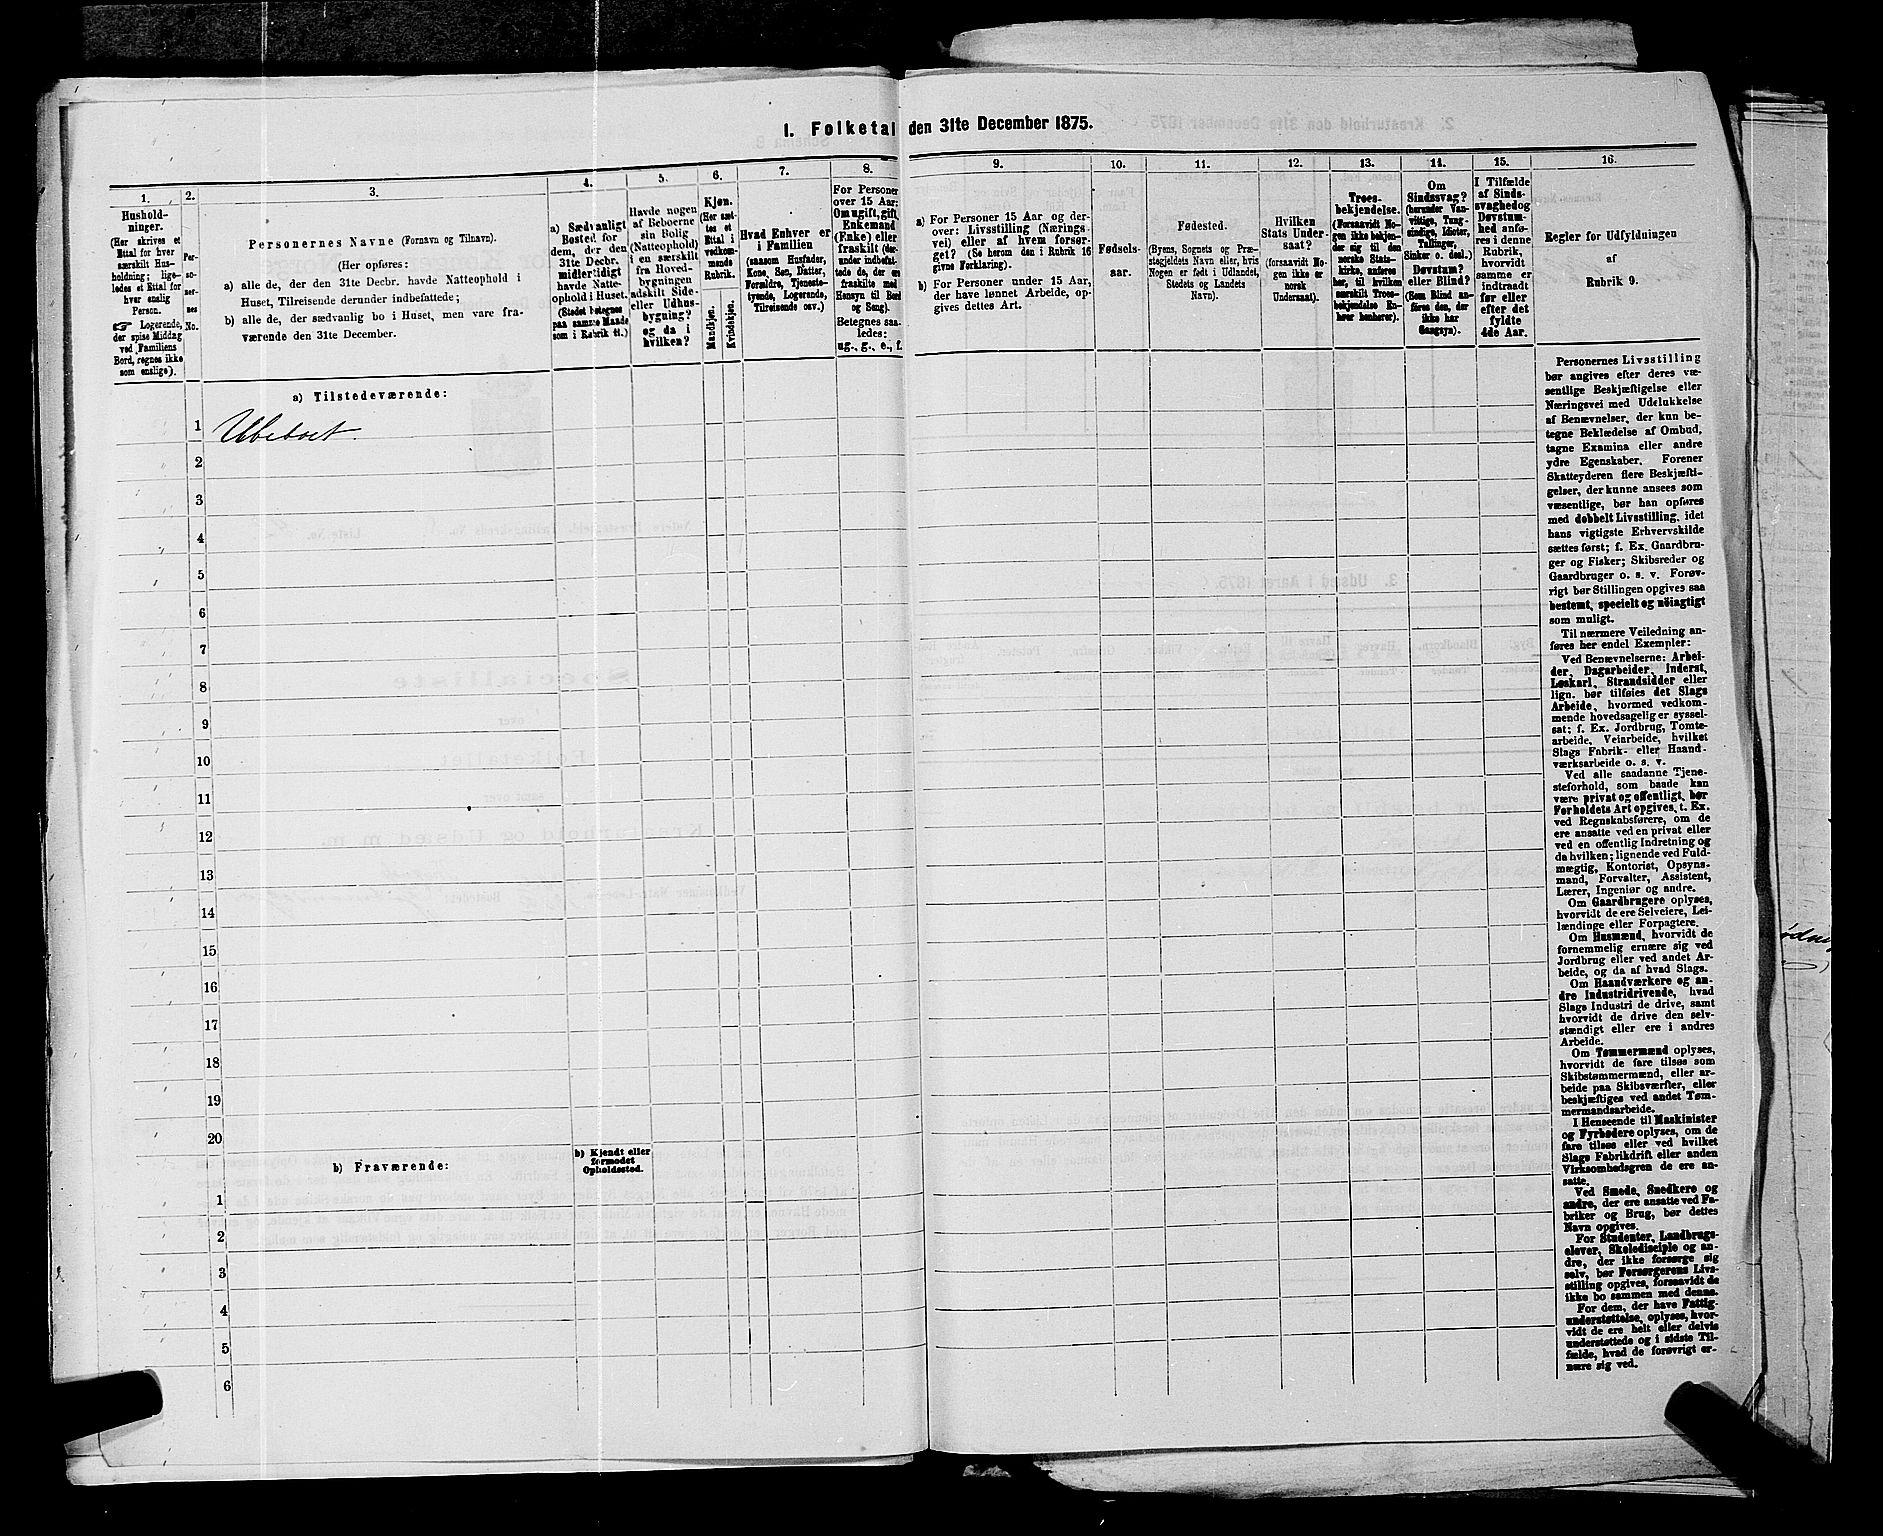 1. Folketal den 31te December 1875.
1.
Hushold-
ninger.
(Her skrives et
Ettal for hver
særskilt Hus-
holdning; lige-
ledes et Ettal for
hver enslig
Person.
☞ Logerende,
der spise Middag
ved Familiens
Bord, regnes ikke
som enslige).
2.
Per-
so-
ner-
nes
No.
3.
Personernes Navne (Fornavn og Tilnavn).
(Her opføres:
a) alle de, der den 31te Decbr. havde Natteophold i
Huset, Tilreisende derunder indbefattede;
b) alle de, der sædvanlig bo i Huset, men vare fra-
værende den 31te December.
4.
a) Sædvanligt
Bosted for
dem, der den
31te Decbr.
midlertidigt
havde Natte-
ophold i Huset.
(Stedet betegnes
paa samme Maade
som i Rubrik 11.)
5.
Havde nogen
af Beboerne
sin Bolig
(Natteophold)
i en særskilt
fra Hoved-
bygningen
adskilt Side-
eller Udhus-
bygning?
og da i
hvilken?
6.
Kjøn.
(Her sæt-
tes et
Ettal i
vedkom-
mende
Rubrik.
Mandkjøn.
Kvindekjøn.
7.
Hvad Enhver er
i Familien
(saasom Husfader,
Kone, Søn, Datter,
Forældre, Tjeneste-
tyende, Logerende,
Tilreisende osv.)
8.
For Personer
over 15 Aar:
Om ugift, gift,
Enkemand
(Enke) eller
fraskilt (der-
under indbefat-
tede de, der ere
fraskilte med
Hensyn til Bord
og Seng).
Betegnes saa-
ledes:
ug., g., e., f.
9.
a) For Personer 15 Aar og der-
over: Livsstilling (Nærings-
vei) eller af hvem forsør-
get? (Se herom den i Rubrik 16
givne Forklaring).
b) For Personer under 15 Aar,
der have lønnet Arbeide, op-
gives dettes Art.
10.
Fødsels-
aar.
11.
Fødested.
(Byens, Sognets og Præ-
stegjeldets Navn eller, hvis
Nogen er født i Udlandet,
Stedets og Landets
Navn).
12.
Hvilken
Stats Under-
saat?
(forsaavidt No-
gen ikke er
norsk
Undersaat).
13.
Troes-
bekjendelse.
(Forsaavidt No-
gen ikke bekjen-
der sig til den
norske Stats-
kirke, anføres
her, til hvilken
særskilt Troes-
bekjendelse En-
hver henhører).
14.
Om
Sindssvag?
(herunder Van-
vittige, Tung-
sindige, Idioter,
Tullinger,
Sinker o. desl.)
Døvstum?
eller Blind?
(Som Blind an-
føres den, der
ikke har
Gangsyn).
15.
I Tilfælde
af Sinds-
svaghed og
Døvstum-
hed anfø-
res i denne
Rubrik,
hvorvidt
samme er
indtraadt
før eller
efter det
fyldte
4de Aar.
16.
Regler for Udfyldningen
af
Rubrik 9.
a) Tilstedeværende:
1 Ubeboet.
2
3
4
5
6
7
8
9
10
11
12
13
14
15
16
17
18
19
20
b) Fraværende:
b) Kjendt eller
formodet
Opholdssted.
1
2
3
4
5
6
Personernes Livsstilling
bør angives efter deres væ-
sentlige Beskjæftigelse eller
Næringsvei med Udelukkelse
af Benævnelser, der kun be-
tegne Beklædelse af Ombud,
tagne Examina eller andre
ydre Egenskaber. Forener
Skatteyderen flere Beskjæfti-
gelser, der kunne ansees som
væsentlige, bør han opføres
med dobbelt Livsstilling, idet
hans vigtigste Erhvervskilde
sættes først; f. Ex. Gaardbru-
ger og Fisker; Skibsreder og
Gaardbruger o. s. v. Forøv-
rigt bør Stillingen opgives saa
bestemt, specielt og nøiagtigt
som muligt.
Til nærmere Veiledning an-
føres her endel Exempler:
Ved Benævnelserne: Arbei-
der, Dagarbeider, Inderst,
Løskarl, Strandsidder eller
lign. bør tilføies det Slags
Arbeide, hvormed vedkom-
mende hovedsagelig er syssel-
sat; f. Ex. Jordbrug, Tomte-
arbeide, Veiarbeide, hvilket
Slags Fabrik- eller Haand-
værksarbeide o. s. v.
Ved alle saadanne Tjene-
steforhold, som baade kan
være privat og offentligt, bør
Forholdets Art opgives, t. Ex.
ved Regnskabsførere, om de
ere ansatte ved en privat eller
ved en offentlig Indretning og
da hvilken; lignende ved Fuld-
mægtig, Kontorist, Opsyns-
mand, Forvalter, Assistent,
Lærer, Ingeniør og andre.
Om Gaardbrugere oplyses,
hvorvidt de ere Selveiere, Lei-
lændinge eller Forpagtere.
Om Husmænd, hvorvidt de
fornemmelig ernære sig ved
Jordbrug eller ved andet Ar-
beide, og da af hvad Slags.
Om Haandværkere og an-
dre Industridrivende, hvad
Slags Industri de drive, samt
hvorvidt de drive den selv-
stændigt eller ere i andres
Arbeide.
Om Tømmermænd oplyses,
hvorvidt de fare tilsøs som
Skibstømmermænd, eller ar-
beide paa Skibsværfter, eller
beskjæftiges ved andet Tøm-
mermandsarbeide.
I Henseende til Maskinister
og Fyrbødere oplyses, om de
fare tilsøs eller ved hvilket
Slags Fabrikdrift eller anden
Virksomhedsgren de ere an-
satte.
Ved Smede, Snedkere og
andre, der ere ansatte ved Fa-
briker og Brug, bør dettes
Navn opgives.
For Studenter, Landbrugs-
elever, Skoledisciple og an-
dre, der ikke forsørge sig
selv, bør Forsørgerens Livs-
stilling opgives, forsaavidt de
ikke bo sammen med denne.
For dem, der have Fattig-
understøttelse, oplyses, hvor-
vidt de ere helt eller delvis
understøttede og i sidste Til-
fælde, hvad de forøvrigt er-
nære sig ved.